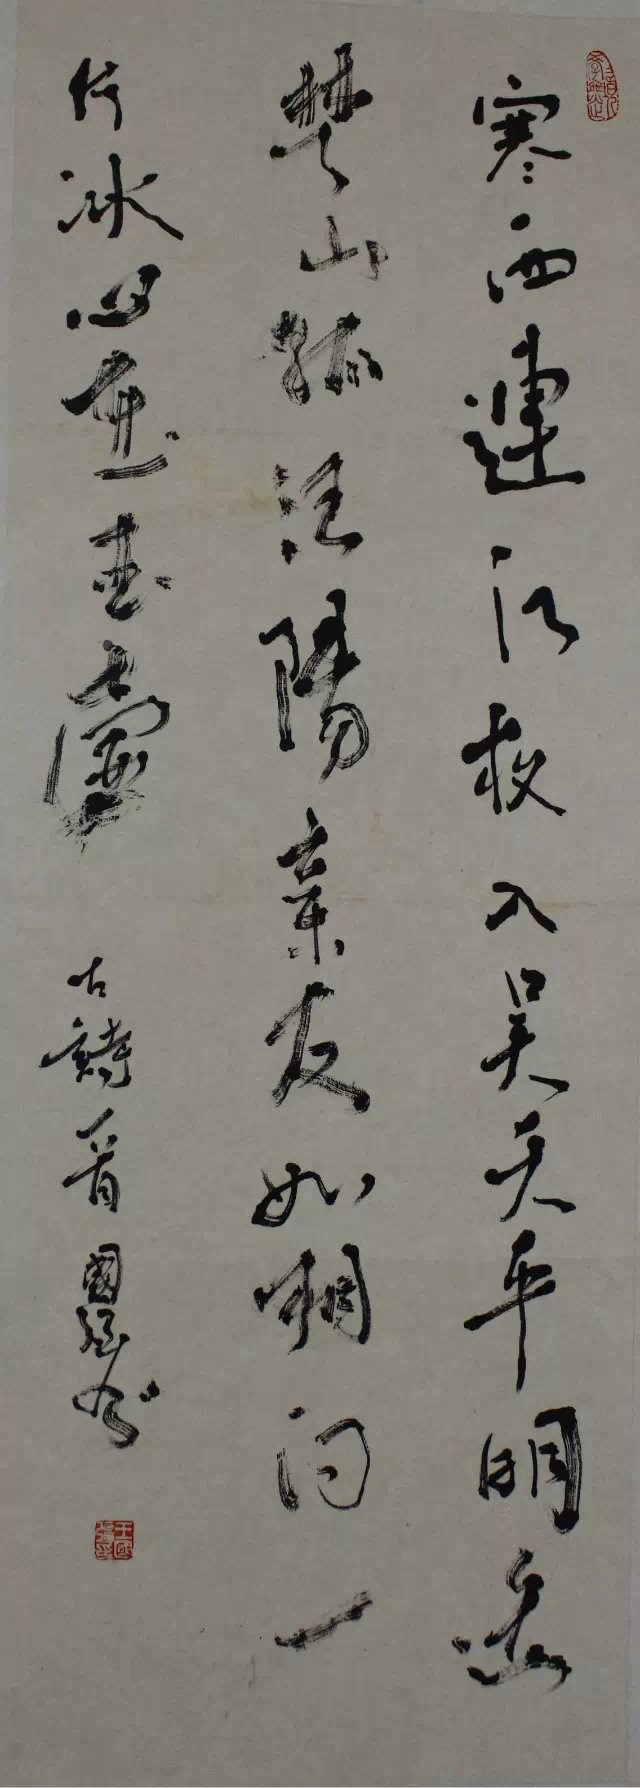 寒雨連江夜入吳天平明送
楚山孤洛陽親友如相問一
片冰心玉壺
古詩一首 國強書
王國強印